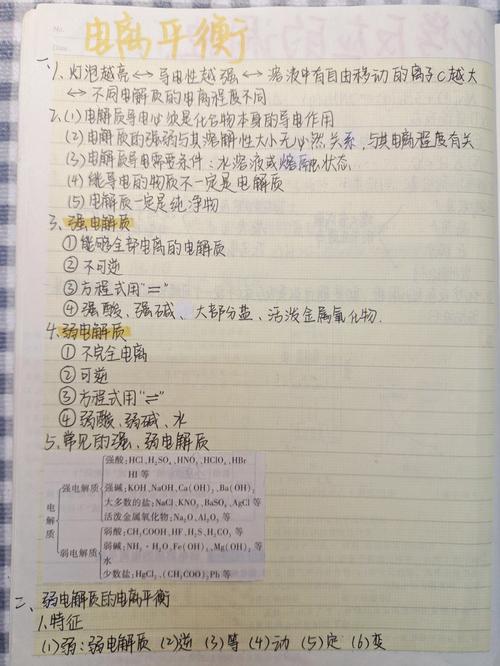 No.
Date
电离平衡
一、1、灯泡越亮↔导电性越强↔溶液中有自由移动的离子C越大
↔不同电解质的电离程度不同
2、(1)电解质导电必须是化合物本身的导电作用
(2)电解质的强弱与其溶解性大小无必然关系，与其电离程度有关
(3)电解质导电需要条件：水溶液或熔融状态
(4)能导电的物质不一定是电解质
(5)电解质一定是纯净物
3、强电解质
①能够全部电离的电解质
②不可逆
③方程式用"="
④强酸、强碱、大部分盐、活泼金属氧化物.
4、弱电解质
①不完全电离
②可逆
③方程式用"⇌"
④弱酸、弱碱、水
5、常见的强、弱电解质
电解质
强电解质
强酸:HCl、H₂SO₄、HNO₃、HClO₄、HBr
HI等
强碱:KOH、NaOH、Ca(OH)₂、Ba(OH)₂
大多数的盐:NaCl、KNO₃、BaSO₄、AgCl等
活泼金属氧化物:Na₂O、Al₂O₃等
弱电解质
弱酸:CH₃COOH、HF、H₂S、H₂CO₃等
弱碱:NH₃·H₂O、Fe(OH)₃、Mg(OH)₂等
水
少数盐:HgCl₂、(CH₃COO)₂Pb等
二、弱电解质的电离平衡
1、特征
(1)弱：弱电解质 (2)逆 (3)等 (4)动 (5)定 (6)变